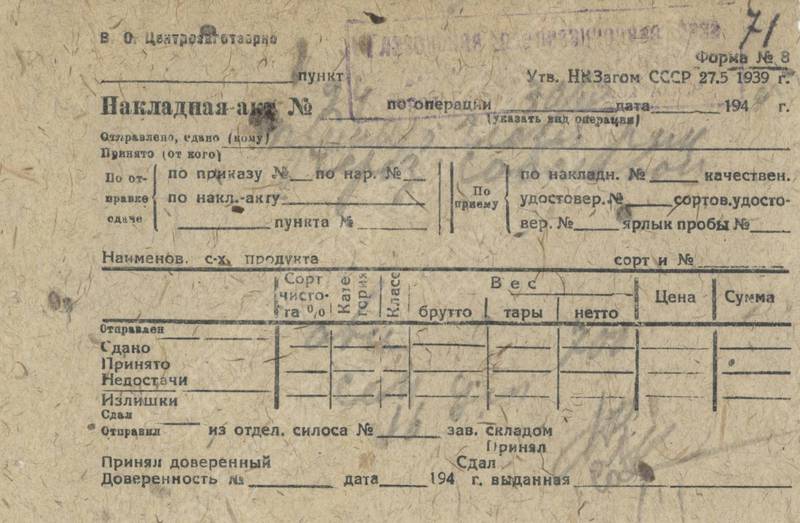 71
В О. Центрозаготзерно
Форма № 8
пункт
Утв. НКЗагом СССР 27.5 1939 г.
Накладная-акт № по операции дата 194 г.
(указать вид операции)
Отправлено, сдано (кому)
Принято (от кого)
По отправке сдаче
по приказу № по нар. №
по накл.-акту
пункта №
По приему
по накладн. № качествен.
удостовер. № сортов.удосто-
вер. № ярлык пробы №
Наименов. с-х. продукта сорт и №
Сорт чисто-та % Категория Класс Вес Цена Сумма
брутто тары нетто
Отправлен
Сдано
Принято
Недостачи
Излишки
Сдал
Отправил из отдел. силоса № зав. складом
Принял
Принял доверенный Сдал
Доверенность № дата 194 г. выданная